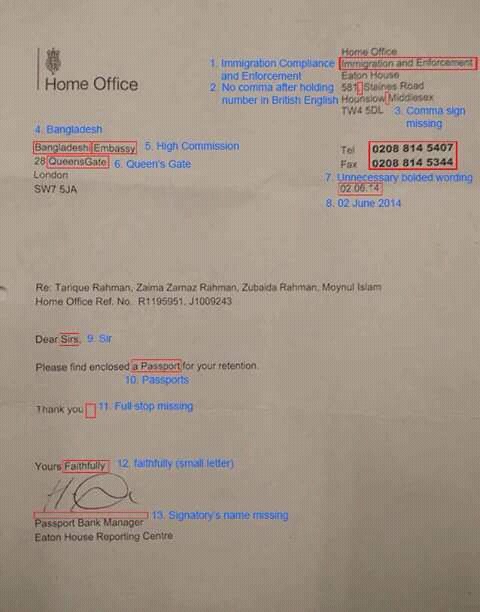 Home Office
1. Immigration Compliance and Enforcement
2. No comma after holding number in British English
Home Office
Immigration and Enforcement
Eaton House
581, Staines Road
Hounslow Middlesex
TW4 5DL
3. Comma sign missing
4. Bangladesh
Bangladeshi Embassy
5. High Commission
28 QueensGate
6. Queen's Gate
London
SW7 5JA
Tel 0208 814 5407
Fax 0208 814 5344
7. Unnecessary bolded wording
02.06.14
8. 02 June 2014
Re: Tarique Rahman, Zaima Zarnaz Rahman, Zubaida Rahman, Moynul Islam
Home Office Ref. No. R1195951, J1009243
Dear Sirs, 9. Sir
Please find enclosed a Passport for your retention.
10. Passports
Thank you 11. Full stop missing
Yours Faithfully 12. faithfully (small letter)
13. Signatory's name missing
Passport Bank Manager
Eaton House Reporting Centre